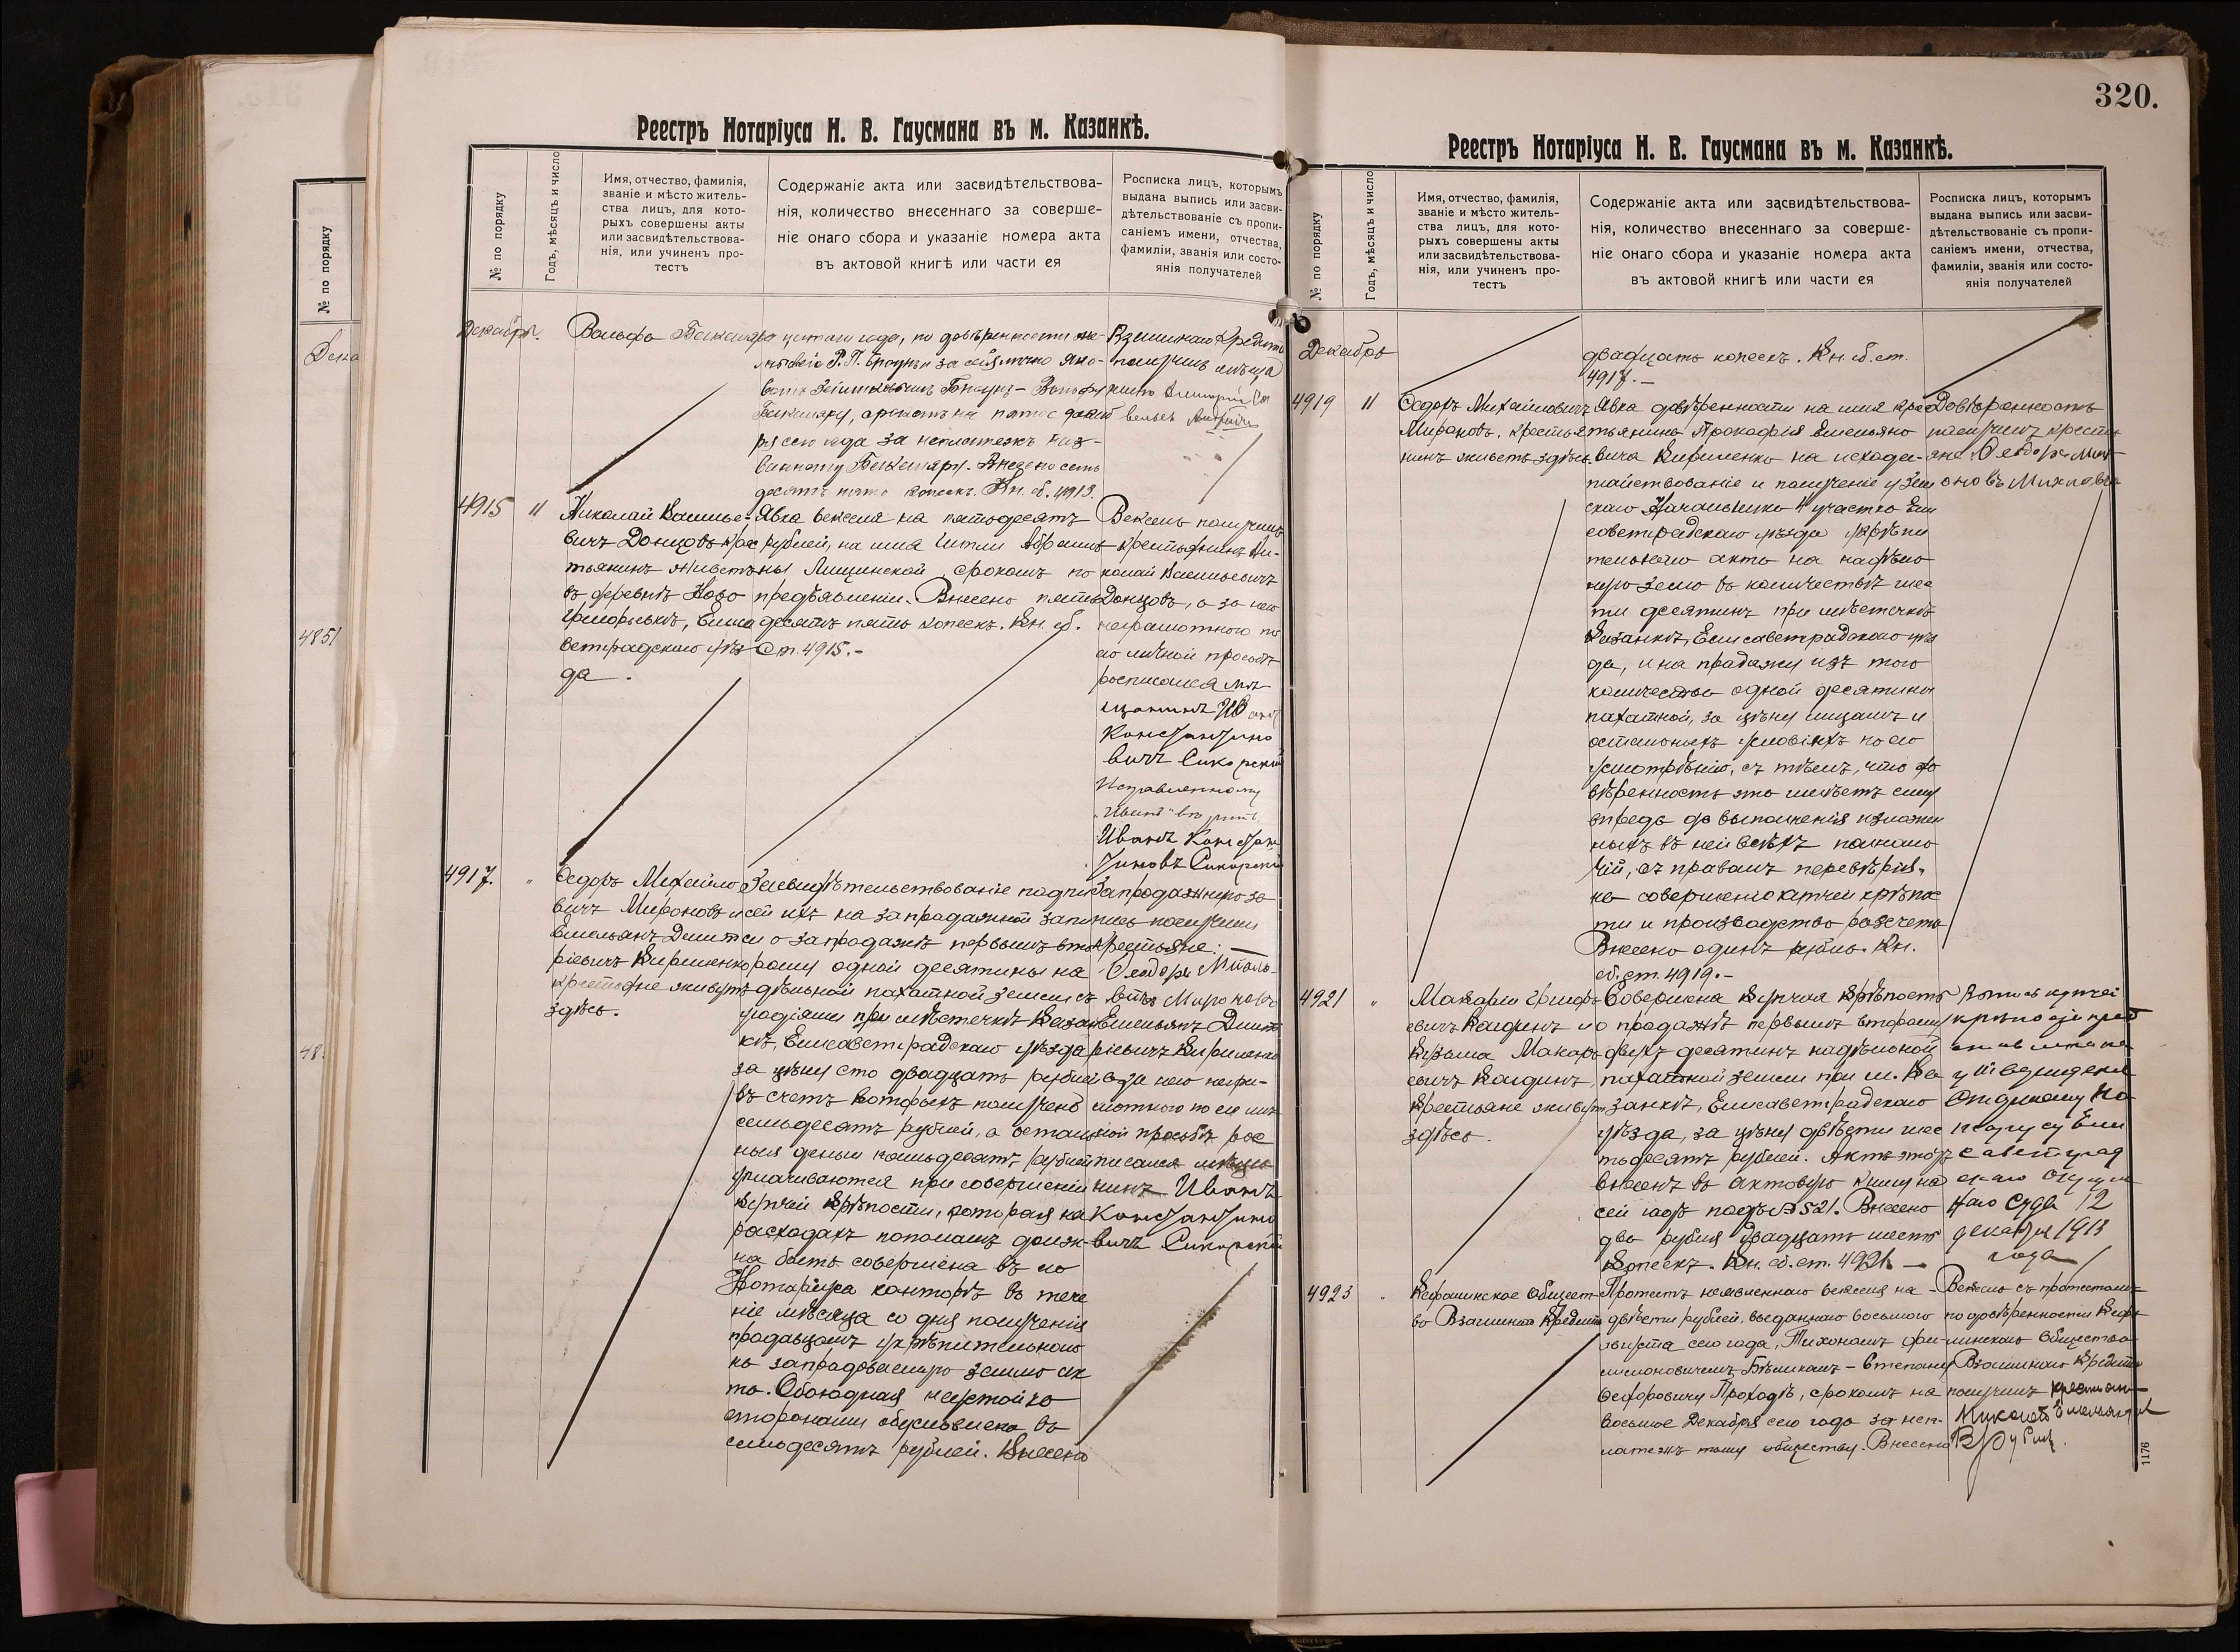 320.
Реестръ Нотаріуса Н. В. Гаусмана въ м. Казанкѣ.
№ по порядку
Годъ, мѣсяцъ и число
Имя, отчество, фамилія,
званіе и мѣсто житель-
ства лицъ, для кото-
рыхъ совершены акты
или засвидѣтельствова-
нія, или учиненъ про-
тестъ
Содержаніе акта или засвидѣтельствова-
нія, количество внесеннаго за соверше-
ніе онаго сбора и указаніе номера акта
въ актовой книгѣ или части ея
Росписка лицъ, которымъ
выдана выпись или засви-
дѣтельствованіе съ пропи-
саніемъ имени, отчества,
фамиліи, званія или состо-
янія получателей
№ по порядку
4851
48
Декабрь.
Вольфа
сего года, по довѣренности
ря сего года за неплатежъ
Внесено семь
десятъ пять копеекъ. Кн. сб. 4913.
Взаимнаго Кредита
получилъ
4915 11
Николай Василье-
вичъ Донцовъ крес
тьянинъ живетъ
въ деревнѣ Ново
Григорьевкѣ, Елиса
ветградскаго уѣз
да.
Явка векселя на пятьдесятъ
рублей, на имя Абрамов
ны Лищинской, срокомъ по
предъявленіи. Внесено пять
десятъ пять копеекъ. Кн. сб.
Ст. 4915.-
Вексель получилъ
крестьянинъ Ни-
колай Васильевичъ
Донцовъ, а за него
неграмотного по
его личной просьбѣ
росписался мѣ
щанинъ Иванъ
Константино
вичъ Сикорскій
Исправленному
„Иванъ" вѣрить
Иванъ Констан
тиновъ Сикорскій
4917.
Федоръ Михайло
вичъ Мироновъ и
Емельянъ Дмит
ріевичъ Кириленко
крестьяне живутъ
здѣсь.
Засвидѣтельствованіе подпи
сей ихъ на запродажной запи
си о запродажѣ первымъ вто
рому одной десятины на
дѣльной пахатной земли съ
угодіями при мѣстечкѣ Казан
кѣ, Елисаветградскаго уѣзда
за цѣну сто двадцать рублей
въ счетъ которыхъ получено
семьдесятъ рублей, а осталь
ныя деньги пятьдесятъ рублей
уплачиваются при совершеніи
купчей крѣпости, которая на
расходахъ пополамъ долж-
на быть совершена въ его
Нотаріуса конторѣ въ тече
ніе мѣсяца со дня полученія
продавцомъ укрѣпительнаго
на запродоваемую землю ак
та. Обоюдная неустойка
сторонами обусловлена въ
семьдесятъ рублей. Внесено
Запродажную за
пись получили
крестьяне:
Феодоръ Михаль-
вичъ Мироновъ
Емельянъ Дмит
ріевичъ Кириленко
а за него негра-
мотнаго по его лич
ной просьбѣ рос
писался мѣща
нинъ Иванъ
Константино
вичъ Сикорскій
Реестръ Нотаріуса Н. В. Гаусмана въ м. Казанкѣ.
№ по порядку
Годъ, мѣсяцъ и число
Имя, отчество, фамилія,
званіе и мѣсто житель-
ства лицъ, для кото-
рыхъ совершены акты
или засвидѣтельствова-
нія, или учиненъ про-
тестъ
Содержаніе акта или засвидѣтельствова-
нія, количество внесеннаго за соверше-
ніе онаго сбора и указаніе номера акта
въ актовой книгѣ или части ея
Росписка лицъ, которымъ
выдана выпись или засви-
дѣтельствованіе съ пропи-
саніемъ имени, отчества,
фамиліи, званія или состо-
янія получателей
Декабрь
двадцать копеекъ. Кн. сб. ст.
4917.-
4919 11
Федоръ Михайловичъ
Мироновъ, крестья
нинъ живетъ здѣсь.
Явка довѣренности на имя кре
стьянина Прокофія Емельяно
вича Кириленко на исхода-
тайствованіе и полученіе у Зем
скаго Начальника 4 участка Ели
саветградскаго уѣзда укрѣпи
тельнаго акта на надѣль
ную землю въ количествѣ шес
ти десятинъ при мѣстечкѣ
Казанкѣ, Елисаветградскаго уѣз
да, и на продажу изъ того
количества одной десятины
пахатной, за цѣну лицамъ и
остальныхъ условіяхъ по его
усмотрѣнію, съ тѣмъ, что до
вѣренность эта имѣетъ силу
впредь до выполненія изложен
ныхъ въ ней всѣхъ полномо
чій, съ правомъ перевѣрія,
на совершеніе купчей крѣпос
ти и производство разсчета
Внесено одинъ рубль. Кн.
сб. ст. 4919.-
Довѣренность
получилъ кресть
янъ Феодоръ Мир
оновъ Михайлов
4921
Макарій Григорь
евичъ Колдинъ и
Козьма Макарь
евичъ Колдинъ,
крестьяне живутъ
здѣсь.
Совершена купчая крѣпость
о продажѣ первымъ второму
двухъ десятинъ надѣльной
пахатной земли при м. Ка
занкѣ, Елисаветградскаго
уѣзда, за цѣну двѣсти шес
тьдесятъ рублей. Актъ этотъ
внесенъ въ актовую книгу на
сей годъ подъ № 521. Внесено
два рубля двадцать шесть
копеекъ. Кн. сб. ст. 4921 -
Выпись купчей
крѣпости пред
ставлена на
утвержденіе
Старшему Но
таріусу Ели
саветград
скаго Окруж
наго Суда 12
декабря 1913
года
4923
Общест
во Взаимнаго Кредита
Протестъ неявленнаго векселя на
двѣсти рублей, выданнаго восьмого
августа сего года, Тихономъ Фи-
лимоновичемъ - Степану
Федоровичу Проходѣ, срокомъ на
восьмое Декабря сего года за неп-
латежъ тому обществу. Внесено
Вексель съ протестомъ
по довѣренности
Общества
Взаимнаго Кредита
получилъ крестьян-
1176